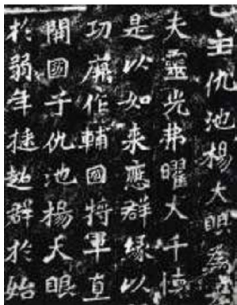 主仇池楊大眼為
夫靈光弗曜大千懷
是以如来應群緣以
功厥作輔國將軍直
開國子仇池楊大眼
於弱年挺超群於始